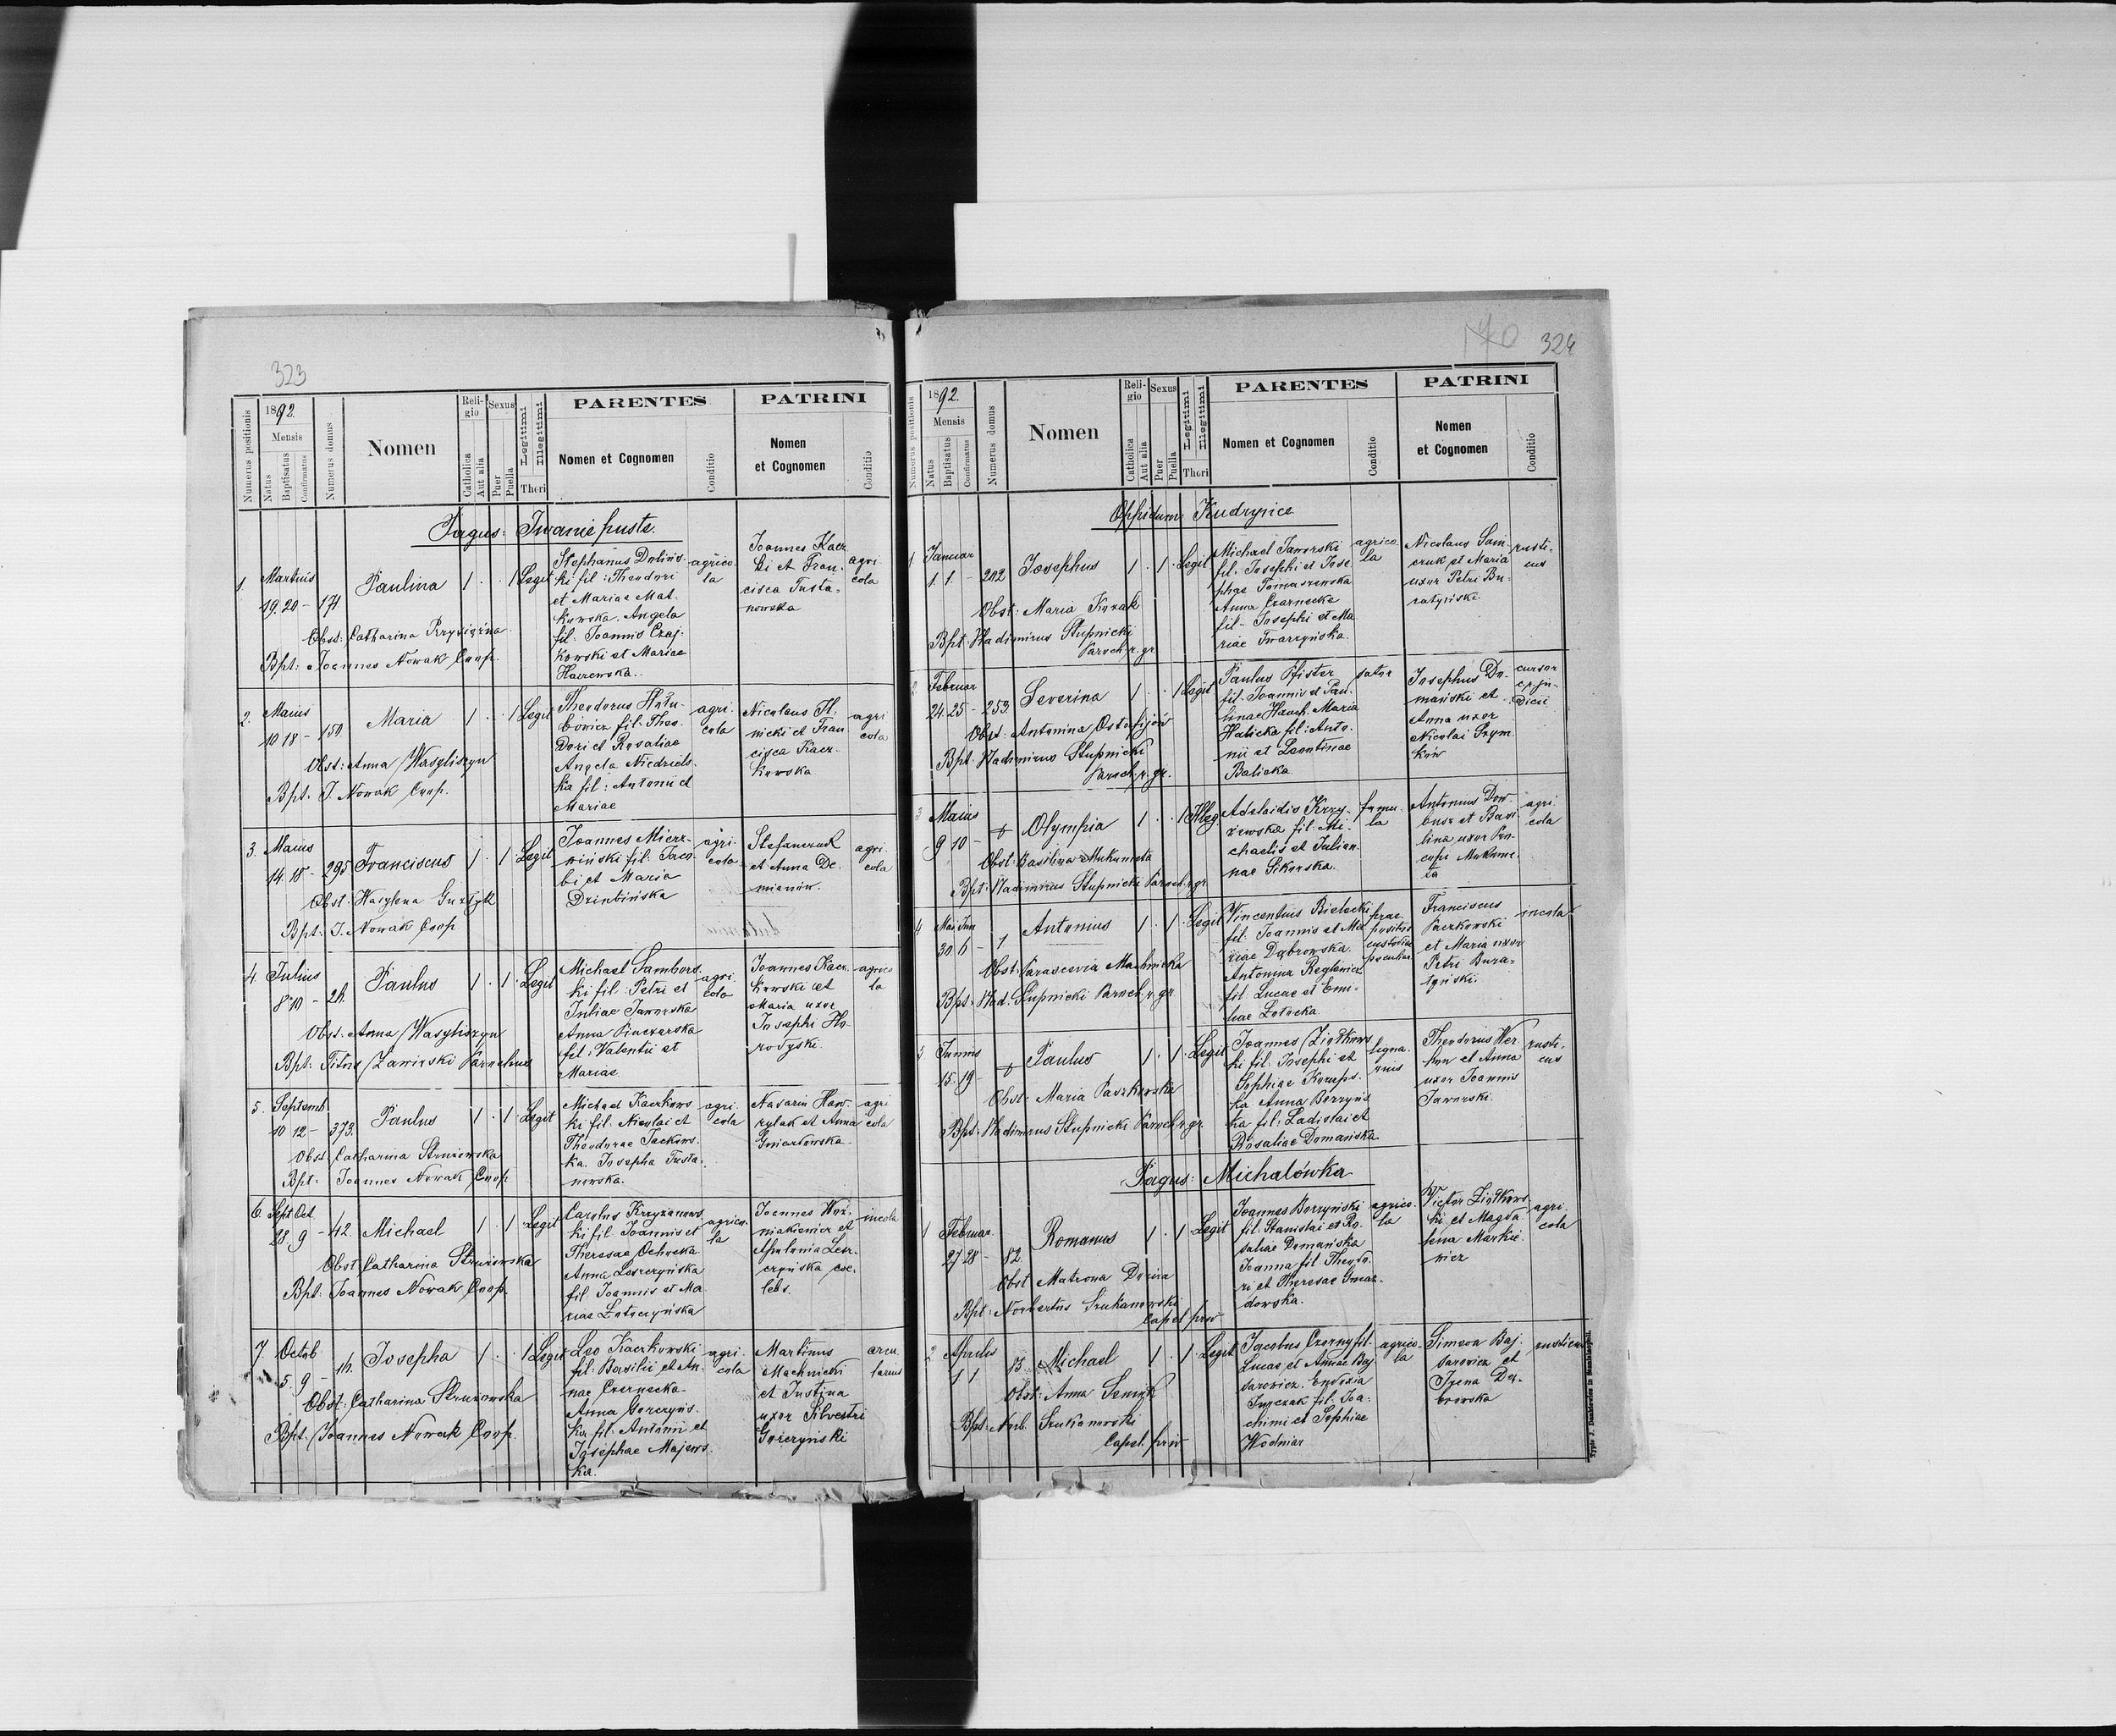 323
Numerus positionis
1892.
Mensis
Natus
Baptisatus
Confirmatus
Numerus domus
Nomen
Religio
Catholica
Aut alia
Sexus
Puer
Puella
Legitimi
Illegitimi
Thori
PARENTES
Nomen et Cognomen
Conditio
PATRINI
Nomen
et Cognomen
Conditio
Pagus: Iwanie puste.
1
Martius
19. 20 - 171
Paulina
1 . . 1 Legit
Obst: Catharina
Bpt: Joannes Nowak Coop.
Stephanus Dolins-
ki fil: Theodori
et Mariae Mat-
kowska. Angela
fil. Joannis Czaj-
kowski et Mariae
agrico-
la
Joannes Kacz
ki et Fran-
cisca Tusta-
nowska
agri-
cola
2.
Maius
10 18 - 150.
Maria
1 . . 1 Legit
Obst: Anna Wasyliszyn
Bpt. J. Nowak Coop.
Theodorus
fil. Theo-
dori et Rosaliae
Angela Niedziels-
ka fil: Antonii et
Mariae
agri-
cola
Nicolaus
nicki et Fran
cisca Kacz-
kowska
agri
cola
3.
Maius
14. 18 - 295
Franciscus
1 . 1 . Legit
Obst. Wasylena
Bpt: J. Nowak Coop
Joannes Mierz-
wiński fil. Jaco-
bi et Maria
Dziubińska
agri-
cola
Stefanczuk
et Anna De-
mianów.
agri
cola
4.
Julius
8 10 - 24.
Paulus
1 . 1 . Legit
Obst. Anna Wasyliszyn
Bpt: Titus Zawirski Parochus
Michael Sambors-
ki fil. Petri et
Juliae Jaworska
Anna Pinczarska
fil. Valentii et
Mariae
agri-
cola
Joannes Kacz-
kowski et
Maria uxor
Josephi Ho-
rodyski.
agrico
la
5.
Septemb
10 12 - 373.
Paulus
1 . 1 Legit
Obst. Catharina Strusowska
Bpt. Joannes Nowak Coop
Michael Kaczkows
ki fil. Nicolai et
Theodorae Jackows-
ka. Josepha Tusta-
nowska.
agri.
cola
Nasarin Haw-
rylak et Anna
Gniazdowska
agri
cola
6.
Sept Oct
28 9 - 42.
Michael
1 . 1 Legit
Obst. Catharina Strusowska
Bpt: Joannes Nowak Coop.
Carolus Krzyżanows
ki fil. Joannis et
Theresae Ochocka
Anna Leszczyńska
fil. Joannis et Ma
riae
agrico-
la
Joannes Woź-
niakiewicz et
Apolonia Lesz-
czyńska coe-
lebs.
incola
7.
Octob
5. 9 - 16.
Josepha
1 . . 1 Legit
Obst. Catharina Strusowska
Bpt. Joannes Nowak Coop.
Leo Kaczkowski
fil. Basilii et An-
nae Czernecka
Anna Gorczyńs-
ka fil. Antonii et
Josephae Majews-
ka.
agri-
cola
Martinus
Machnicki
et Justina
uxor Silvestri
Gorczyński
arcu
larius
170
324
Numerus positionis
1892.
Mensis
Natus
Baptisatus
Confirmatus
Numerus domus
Nomen
Religio
Catholica
Aut alia
Sexus
Puer
Puella
Legitimi
Illegitimi
Thori
PARENTES
Nomen et Cognomen
Conditio
PATRINI
Nomen
et Cognomen
Conditio
Oppidum Kudryńce
1
Januar
1. 1 - 202
Josephus
1 . 1 . Legit
Obst: Maria Kozak
Bpt: Wladimirus Stupnicki
Paroch. r. gr
Michael Jaworski
fil. Josephi et Jose
phae Tomaszewska
Anna Czarnecka
fil. Josephi et Ma
riae Twarzyńska.
agrico-
la
Nicolaus Sam-
czuk et Maria
uxor Petri Bu-
ratyński.
rusti-
cus
2.
Februar
24. 25 - 253.
Severina
1 . . 1 Legit
Obst. Antonina
Bpt. Wladimirus Stupnicki
Paroch. r. gr.
Paulus Pfister
fil. Joannis et Pau-
linae Hauch. Maria
Halicka fil: Anto-
nii et Leontinae
Balicka
sutor
Josephus Do-
mański et
Anna uxor
Nicolai Szym
ków
cursor
c. r. ju-
dicii
3
Maius
9 10 -
Olympia
1 . . 1 Illeg
Obst. Basilina Mukumeta
Bpt: Wladimirus Stupnicki Paroch. r. gr.
Adelaidis Krzy-
żewska fil. Mi-
chaelis et Julian-
nae Sikorska.
famu-
la
Antonius Dow-
busz et Basi
lina uxor Pro-
copi Mukume-
ta
agri-
cola
4
Mai Jun
30. 6 - 1
Antonius
1 . 1 . Legit
Obst. Parascevia Machnicka
Bpt. Wlad. Stupnicki Paroch. r. gr.
Vincentius Bielecki
fil. Joannis et Ma
riae Dąbrowska.
Antonina
fil. Lucae et Emi-
liae Zołocka.
prae
positus
custodiae
Franciscus
Paczkowski
et Maria uxor
Petri Bura-
tyński.
incola
5
Junius
15. 19 -
Paulus
1 . 1 . Legit
Obst. Maria Paszkowska
Bpt. Wladimirus Stupnicki Paroch r. gr.
Joannes Ziółkows
ki fil. Josephi et
Sophiae
ka Anna Borzyńs
ka fil. Ladislai et
Rosaliae Domańska
ligna-
rius
Theodorus Wer-
bon et Anna
uxor Joannis
Jaworski.
rusti-
cus
Pagus: Michałówka
1
Februar.
27 28 - 82.
Romanus
1 . 1 . Legit
Obst Matrona
Bpt: Norbertus Szukanowski
Capel. priv
Joannes Borzyński
fil. Stanislai et Ro-
saliae Domańska
Joanna fil. Theodo-
ri et Theresae Gniaz-
dowska.
agrico-
la
Victor Ziółkows-
ki et Magda
lena Markie-
wicz
agri-
cola
2
Aprilis
1 1
13
Michael
1 . 1 . Legit
Obst: Anna
Bpt: Norb. Szukanowski
Capel. priv
Jacobus Czorny fil.
Lucae et Annae Baj
sarowicz. Eudoxia
fil. Joa-
chimi et Sophiae
Wodniar
agrico-
la
Simeon Baj-
sarowicz et
Irena Du-
browska
rusticus
Typis J. Dankiewicz in Stanislaopoli.